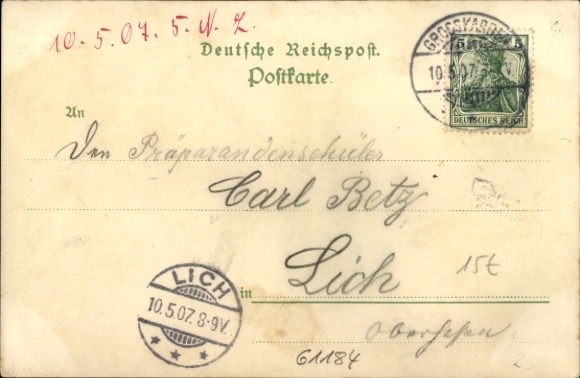 10.5.07. 5. N. Z.
Deutsche Reichspost.
Postkarte.
5 5
10.5.07
DEUTSCHES REICH
An
Den Präparandenschüler
Carl Betz
in Lich
15€
Oberhessen
LICH
10.5.07. 8-9V.
61184